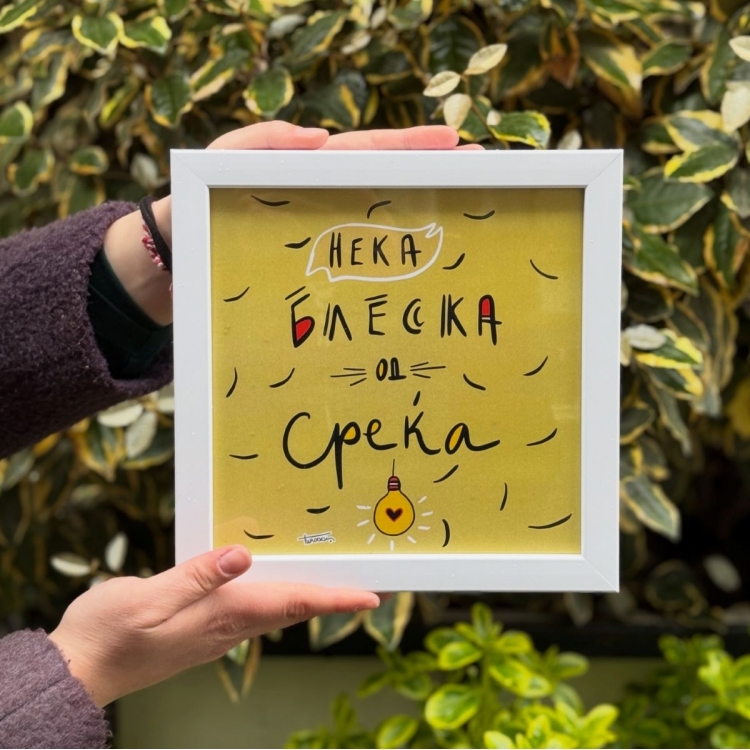 НЕКА
БЛЕСКА
ОД
Среќа